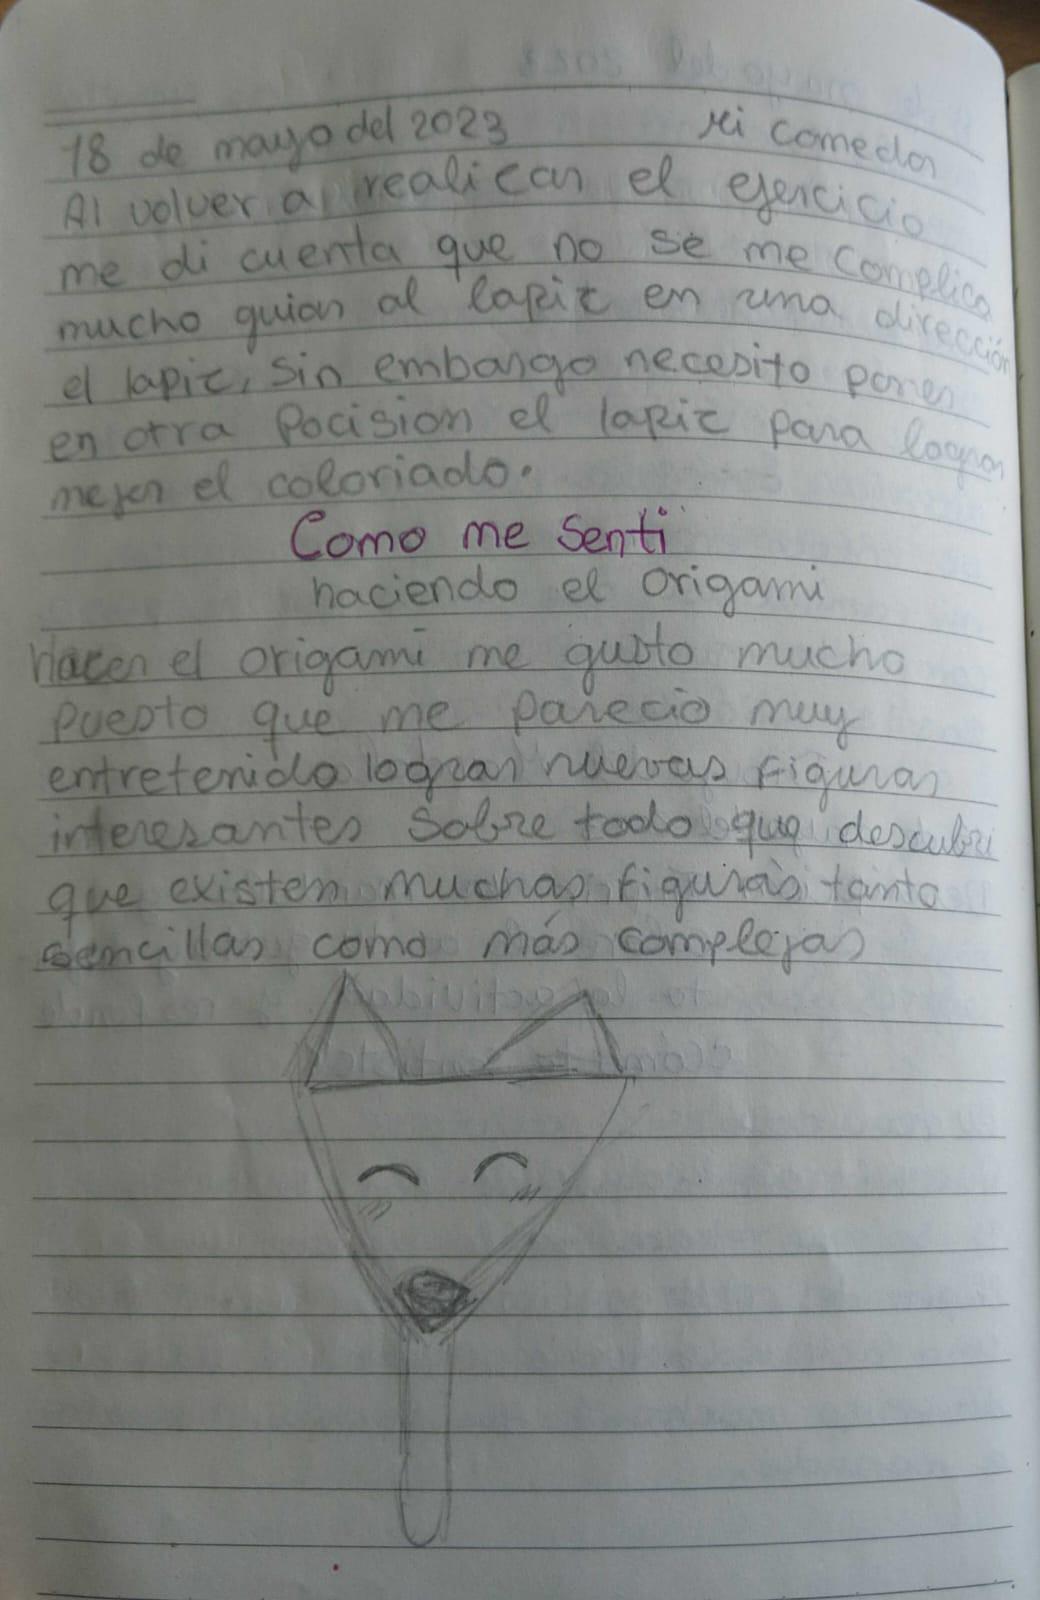 18 de mayo del 2023 Mi comedor
Al volver a realizar el ejercicio
me di cuenta que no se me complica
mucho guiar al lapiz en una dirección
el lapiz, sin embargo necesito poner
en otra Pocision el lapiz para lograr
mejor el coloriado.
Como me Senti
haciendo el origami
Hacer el origami me gusto mucho
puesto que me parecio muy
entretenido lograr nuevas figuras
interesantes Sobre todo que descubri
que existen muchas figuras tanto
sencillas como más complejas